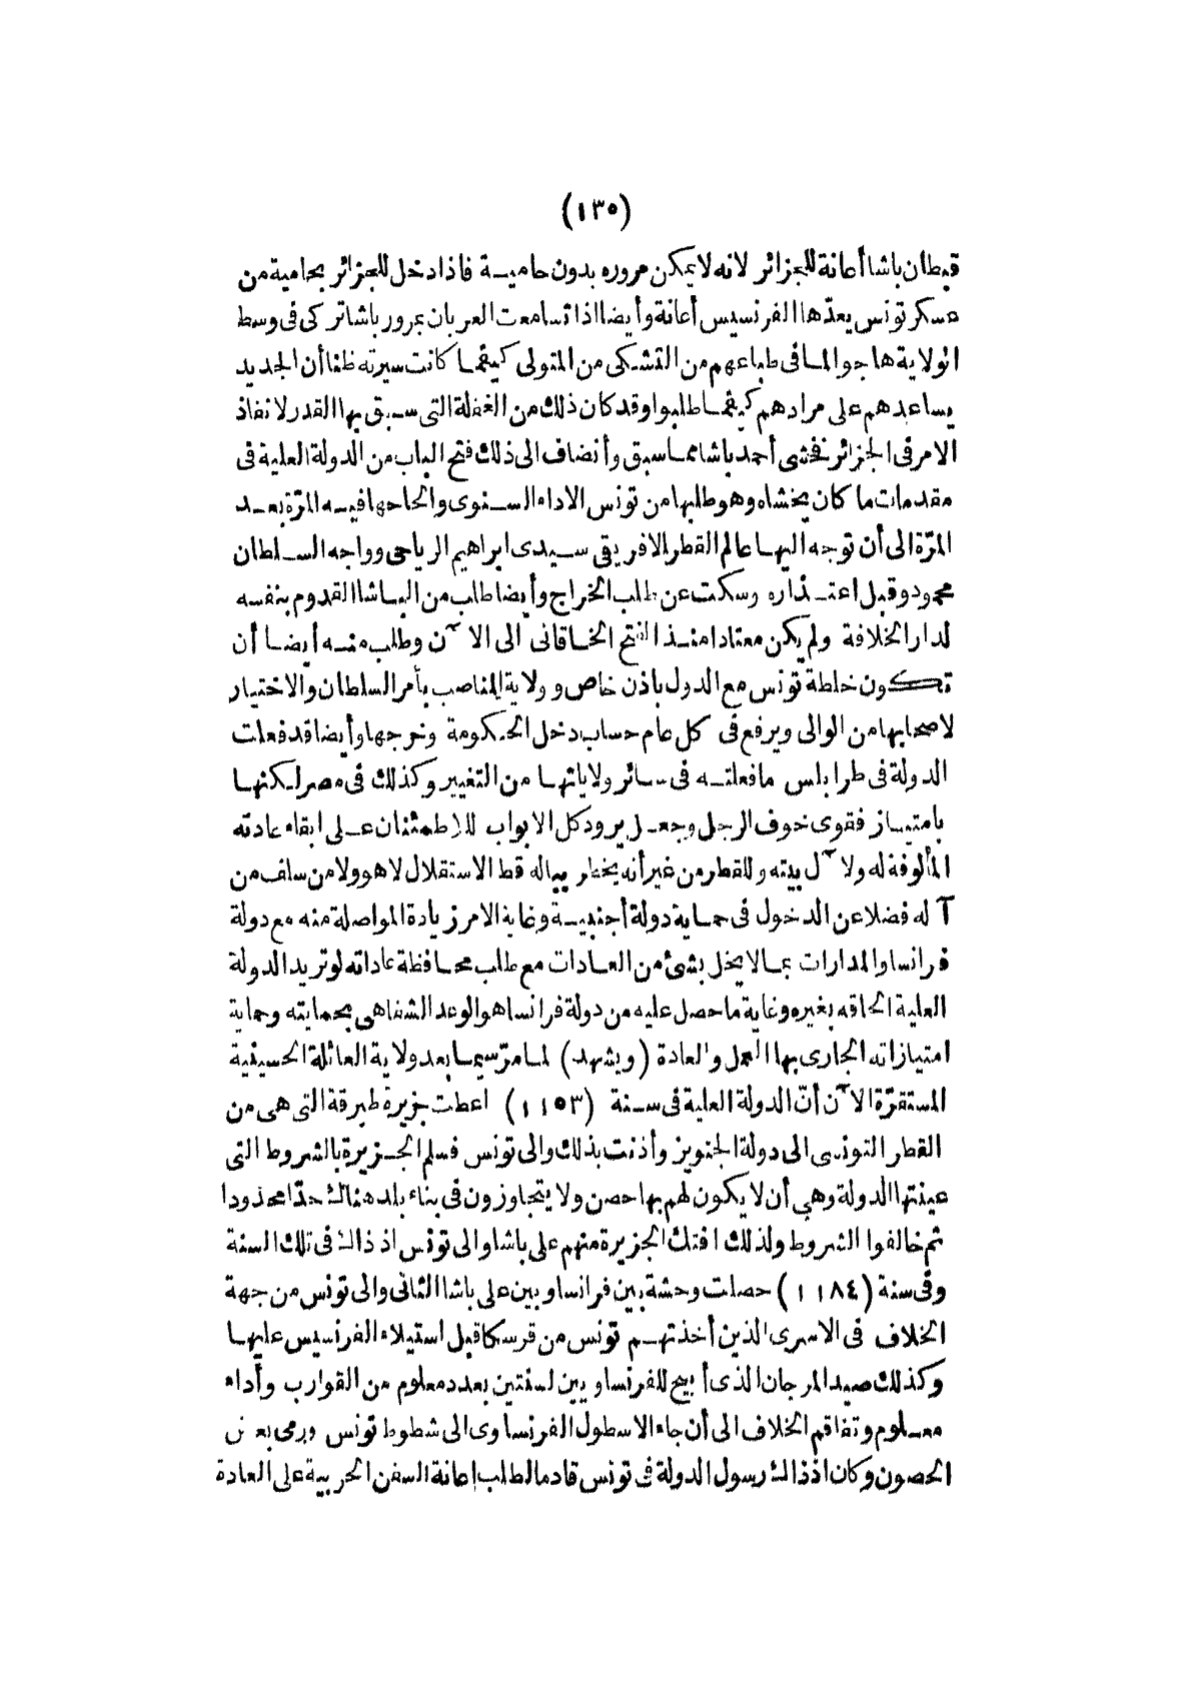 (١٣٥)
قبطان باشا أعانة للجزائر لانه لا يمكن مروره بدون حامية فاذا دخل للجزائر بحامية من
عسكر تونس يعدّها الفرنسيس أعانة وأيضا اذا تسامعت العربان بمرور باشا تركى فى وسط
الولاية هاجوا لما فى طباعهم من التشكى من المتولى كيفما كانت سيرته ظنا أن الجديد
يساعدهم على مرادهم كيفما طلبوا وقد كان ذلك من الغفلة التى سبق بها القدر لانفاذ
الامر فى الجزائر فخشى أحمد باشا مما سبق وأنضاف الى ذلك فتح الباب من الدولة العلية فى
مقدمات ما كان يخشاه وهو طلبها من تونس الاداء السنوى والحاحها فيه المرّة بعد
المرّة الى أن توجه اليها عالم القطر الافريقى سيدى ابراهيم الرياحى وواجه السلطان
محمود وقبل اعتذاره وسكتت عن طلب الخراج وأيضا طلب من الباشا القدوم بنفسه
لدار الخلافة ولم يكن معتادا منذ الفتح الخاقانى الى الآن وطلب منه أيضا أن
تكون خلطة تونس مع الدول باذن خاص وولاية المناصب بأمر السلطان والاختيار
لاصحابها من الوالى ويرفع فى كل عام حساب دخل الحكومة وخرجها وأيضا قد فعلت
الدولة فى طرابلس ما فعلته فى سائر ولاياتها من التغيير وكذلك فى مصر لكنها
بامتياز فقوى خوف الرجل وجعل يرود كل الابواب للاطمئنان على ابقاء عادته
المألوفة له ولآل بيته وللقطر من غير أنه يخطر بباله قط الاستقلال لا هو ولا من سلف من
آله فضلا عن الدخول فى حماية دولة أجنبية وغاية الامر زيادة المواصلة منه مع دولة
فرانسا والمدارات بما لا يخل بشئ من العادات مع طلب محافظة عاداته لو تريد الدولة
العلية الحاقه بغيره وغاية ما حصل عليه من دولة فرانسا هو الوعد الشفاهى بحمايته وحماية
امتيازاته الجارى بها العمل والعادة (ويشهد) لما مرّ سيما بعد ولاية العائلة الحسينية
المستقرّة الآن أنّ الدولة العلية فى سنة (١١٥٣) اعطت جزيرة طبرقة التى هى من
القطر التونسى الى دولة الجنويز وأذنت بذلك والى تونس فسلم الجزيرة بالشروط التى
عينتها الدولة وهى أن لا يكون لهم بها حصن ولا يتجاوزون فى بناء بلد هناك حدّا محدودا
ثم خالفوا الشروط ولذلك افتك الجزيرة منهم على باشا والى تونس اذ ذاك فى تلك السنة
وفى سنة (١١٨٤) حصلت وحشة بين فرانسا وبين على باشا الثانى والى تونس من جهة
الخلاف فى الاسرى الذين أخذتهم تونس من قرسكا قبل استيلاء الفرنسيس عليها
وكذلك صيد المرجان الذى أبيح للفرنساويين لسنتين بعدد معلوم من القوارب وأداء
معلوم وتفاقم الخلاف الى أن جاء الاسطول الفرنساوى الى شطوط تونس ورمى بعض
الحصون وكان اذ ذاك رسول الدولة فى تونس قادما لطلب إعانة السفن الحربية على العادة